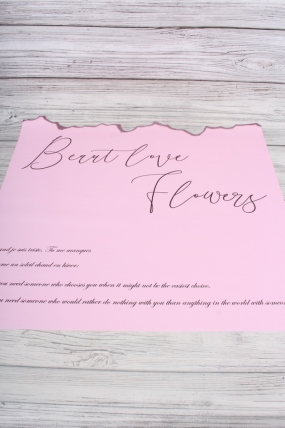 Beaut love
Flowers
and je suis triste. Tu me manques
me un soleil chaud en hiver.
ou need someone who chooses you when it might not be the easiest choice.
u need someone who would rather do nothing with you than anything in the world with someon